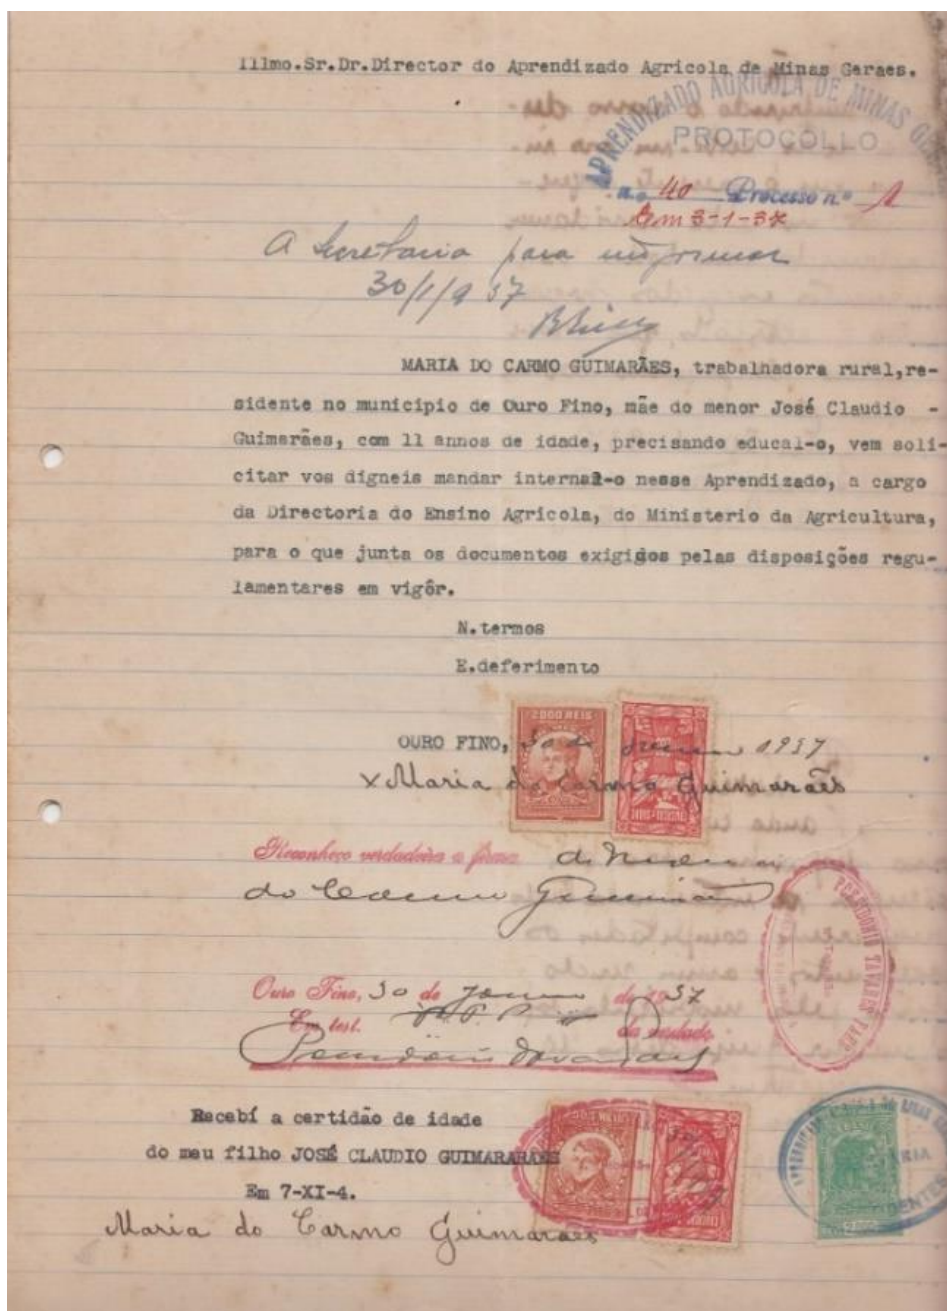 Illmo.Sr.Dr.Director do Aprendizado Agricola de Minas Geraes.
APRENDIZADO AGRICOLA DE MINAS
PROTOCOLLO
n.o 40 Processo n.o 1
Em 3-1-37
A Secretaria para informar
30/1/937
MARIA DO CARMO GUIMARÃES, trabalhadora rural,re-
sidente no municipio de Ouro Fino, mãe do menor José Claudio -
Guimarães, com 11 annos de idade, precisando educal-o, vem soli-
citar vos digneis mandar internal-o nesse Aprendizado, a cargo
da Directoria do Ensino Agricola, do Ministerio da Agricultura,
para o que junta os documentos exigidos pelas disposições regu-
lamentares em vigôr.
N.termos
E.deferimento
2000 REIS
OURO FINO, 30 de 1937
x Maria do Carmo Guimarães
Reconheço verdadeira a firma de Maria
do Carmo Guimarães
TAVARES PAES
Ouro Fino, 30 de Janeiro de 1937
Em test. da verdade
Recebí a certidão de idade
do meu filho JOSÉ CLAUDIO GUIMARARÃES
Em 7-XI-4.
Maria do Carmo Guimarães